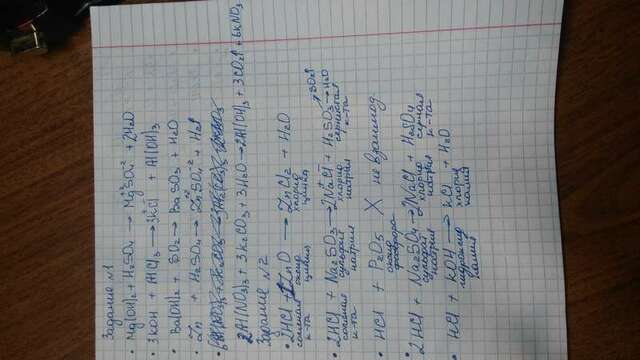 Задание №1
• Mg(OH)₂ + H₂SO₄ → Mg⁺²SO₄⁻² + 2H₂O
• 3KOH + AlCl₃ → 3KCl + Al(OH)₃
• Ba(OH)₂ + SO₂ → BaSO₃ + H₂O
• Zn + H₂SO₄ → Zn⁺²SO₄⁻² + H₂↑
2Al(NO₃)₃ + 3K₂CO₃ + 3H₂O → 2Al(OH)₃ + 3CO₂↑ + 6KNO₃
Задание №2
• 2HCl + ZnO → ZnCl₂ + H₂O
соляная оксид хлорид
к-та цинка цинка
• 2HCl + Na₂SO₃ → 2NaCl + H₂SO₃ → SO₂↑ H₂O
соляная сульфит хлорид сернистая
к-та натрия натрия к-та
• HCl + P₂O₅ X не взаимод.
оксид
фосфора
• 2HCl + Na₂SO₄ → 2NaCl + H₂SO₄
сульфат хлорид серная
натрия натрия к-та
• HCl + KOH → KCl + H₂O
гидроксид хлорид
калия калия